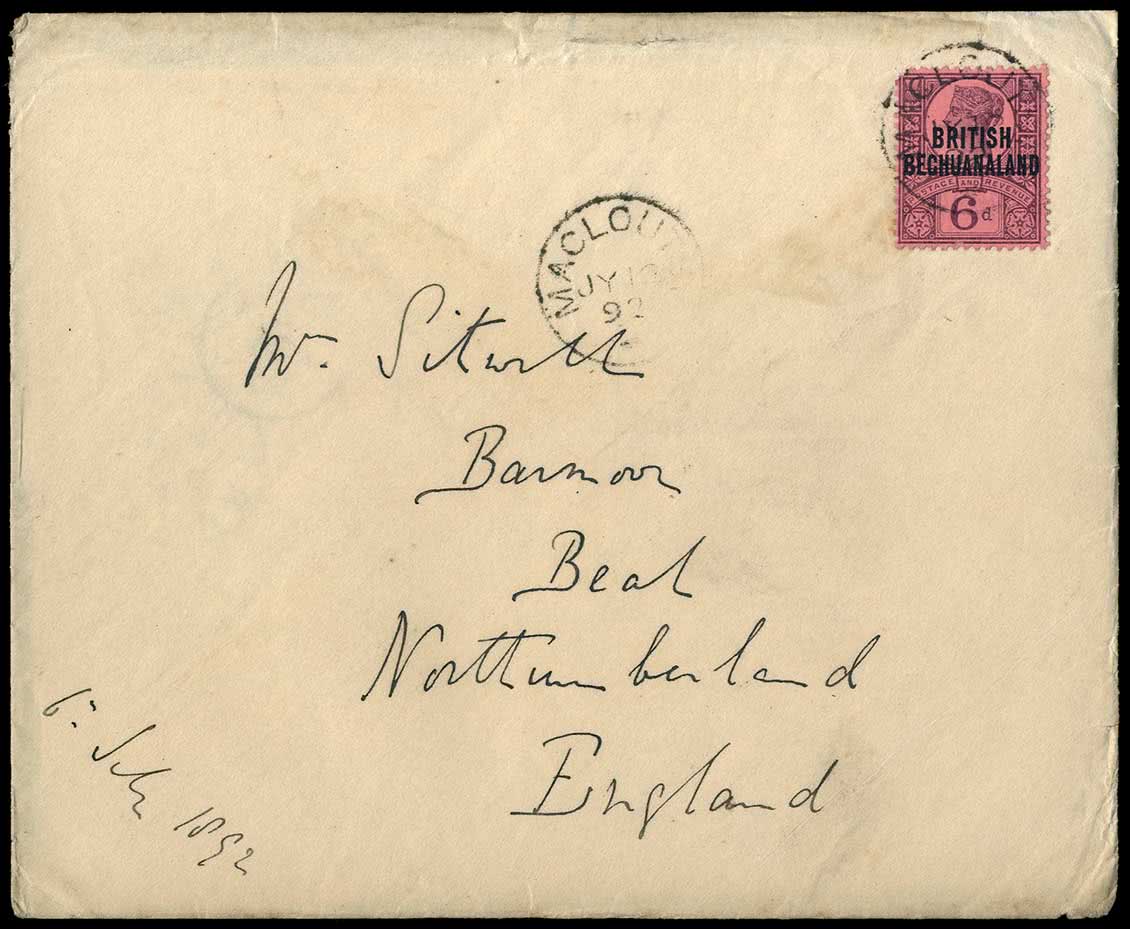 MACLOUT
BRITISH
BECHUANALAND
POSTAGE AND REVENUE
6d
MACLOUT
JY 1
92
Mr. Sitwell
Barmoor
Beal
Northumberland
England
6th July 1892